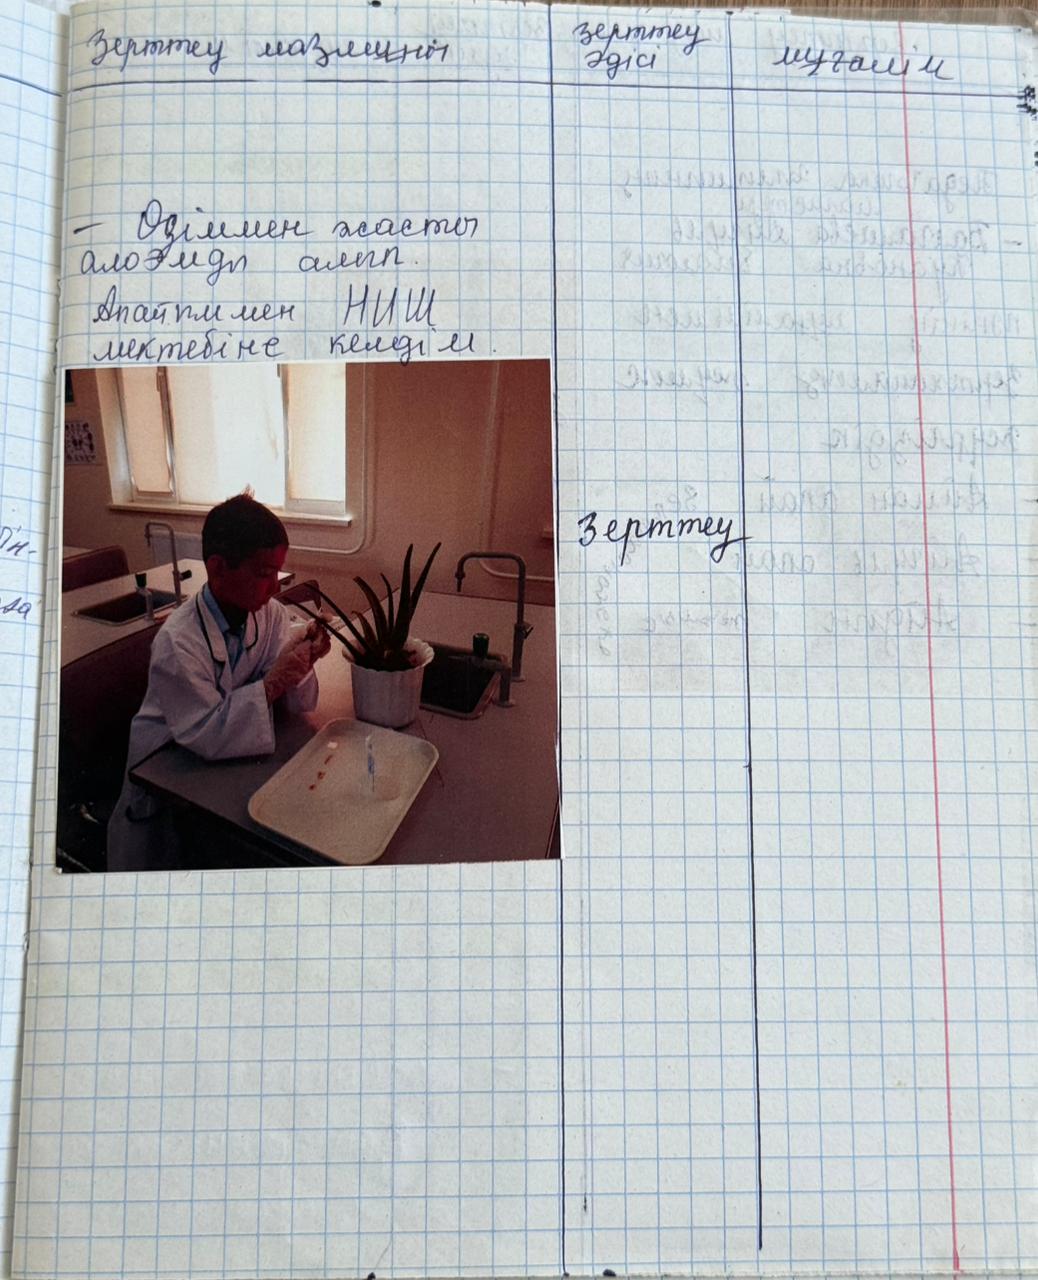 Зерттеу мазмұны
зерттеу
әдісі
мұғалім
- Өзіммен жасты
алоэмды алып.
Апайыммен НИШ
мектебіне келдім.
Зерттеу